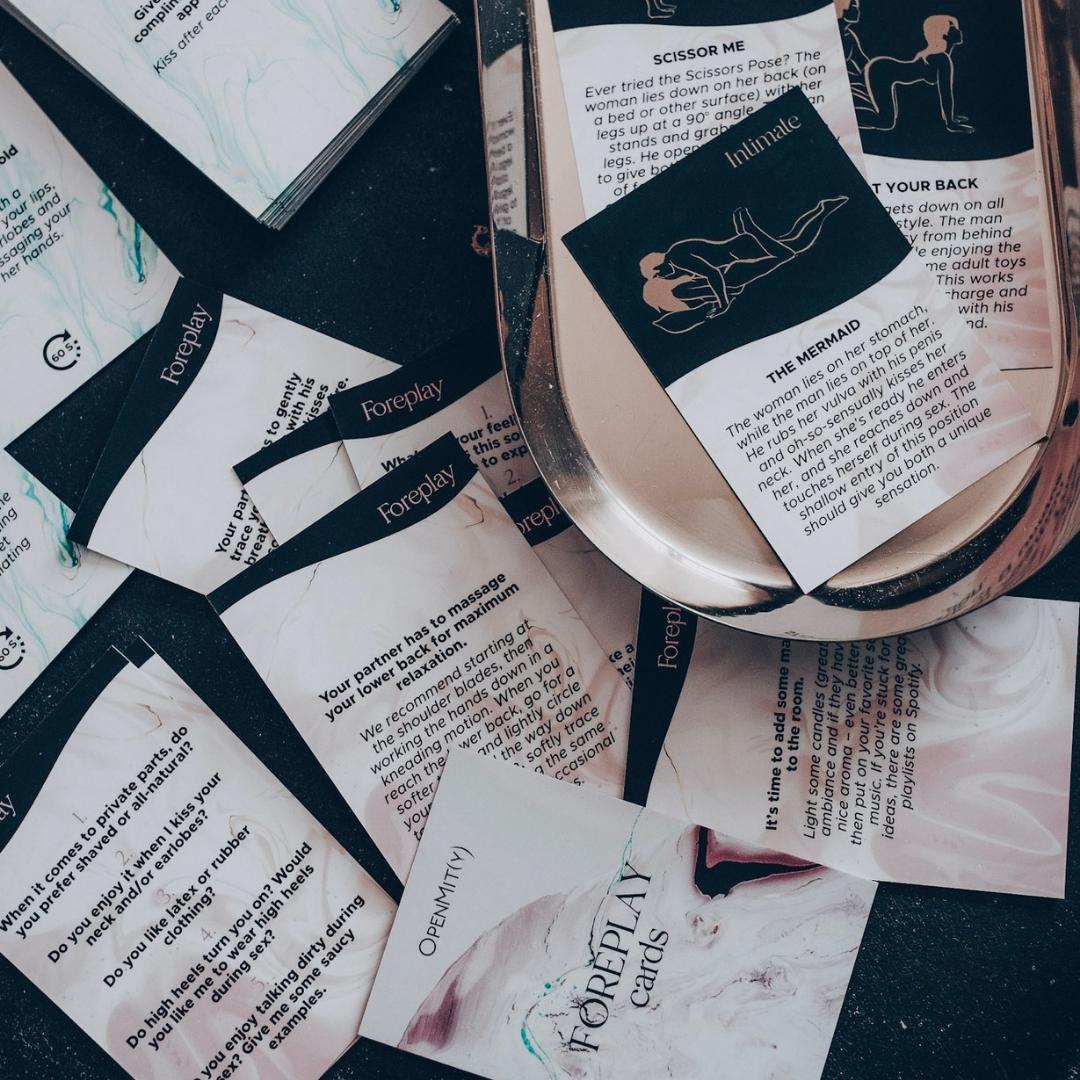 Give
complim
app
Kiss after each
old
th a
your lips,
rlobes and
ssaging your
her hands.
60 S.
Foreplay
s to gently
with his
isses
re.
Your part
trace y
breat
Foreplay
1.
your feel
Wha
this so
to exp
2.
SCISSOR ME
Ever tried the Scissors Pose? The
woman lies down on her back (on
a bed or other surface) with her
legs up at a 90° angle.
stands and grab
legs. He open
to give bo
of f
T YOUR BACK
gets down on all
style. The man
y from behind
le enjoying the
me adult toys
This works
charge and
with his
nd.
Intimate
THE MERMAID
The woman lies on her stomach,
while the man lies on top of her.
He rubs her vulva with his penis
and oh-so-sensually kisses her
neck. When she's ready he enters
her, and she reaches down and
touches herself during sex. The
shallow entry of this position
should give you both a unique
sensation.
Foreplay
Your partner has to massage
your lower back for maximum
relaxation.
We recommend starting at
the shoulder blades, then
working the hands down in a
kneading motion. When you
reach the
wer back, go for a
softer
and lightly circle
your
the way down
softly trace
the same
ccasional
orepl
Forepl
It's time to add some ma
to the room.
Light some candles (great
ambiance and if they hav
nice aroma – even better
then put on your favorite s
music. If you're stuck for
ideas, there are some grea
playlists on Spotify.
he
ing
et
lating
60 S.
ay
1.
When it comes to private parts, do
you prefer shaved or all-natural?
2.
Do you enjoy it when I kiss your
neck and/or earlobes?
3.
Do you like latex or rubber
clothing?
4.
Do high heels turn you on? Would
you like me to wear high heels
during sex?
5.
you enjoy talking dirty during
sex? Give me some saucy
examples.
OPENMIT(Y)
FOREPLAY
cards